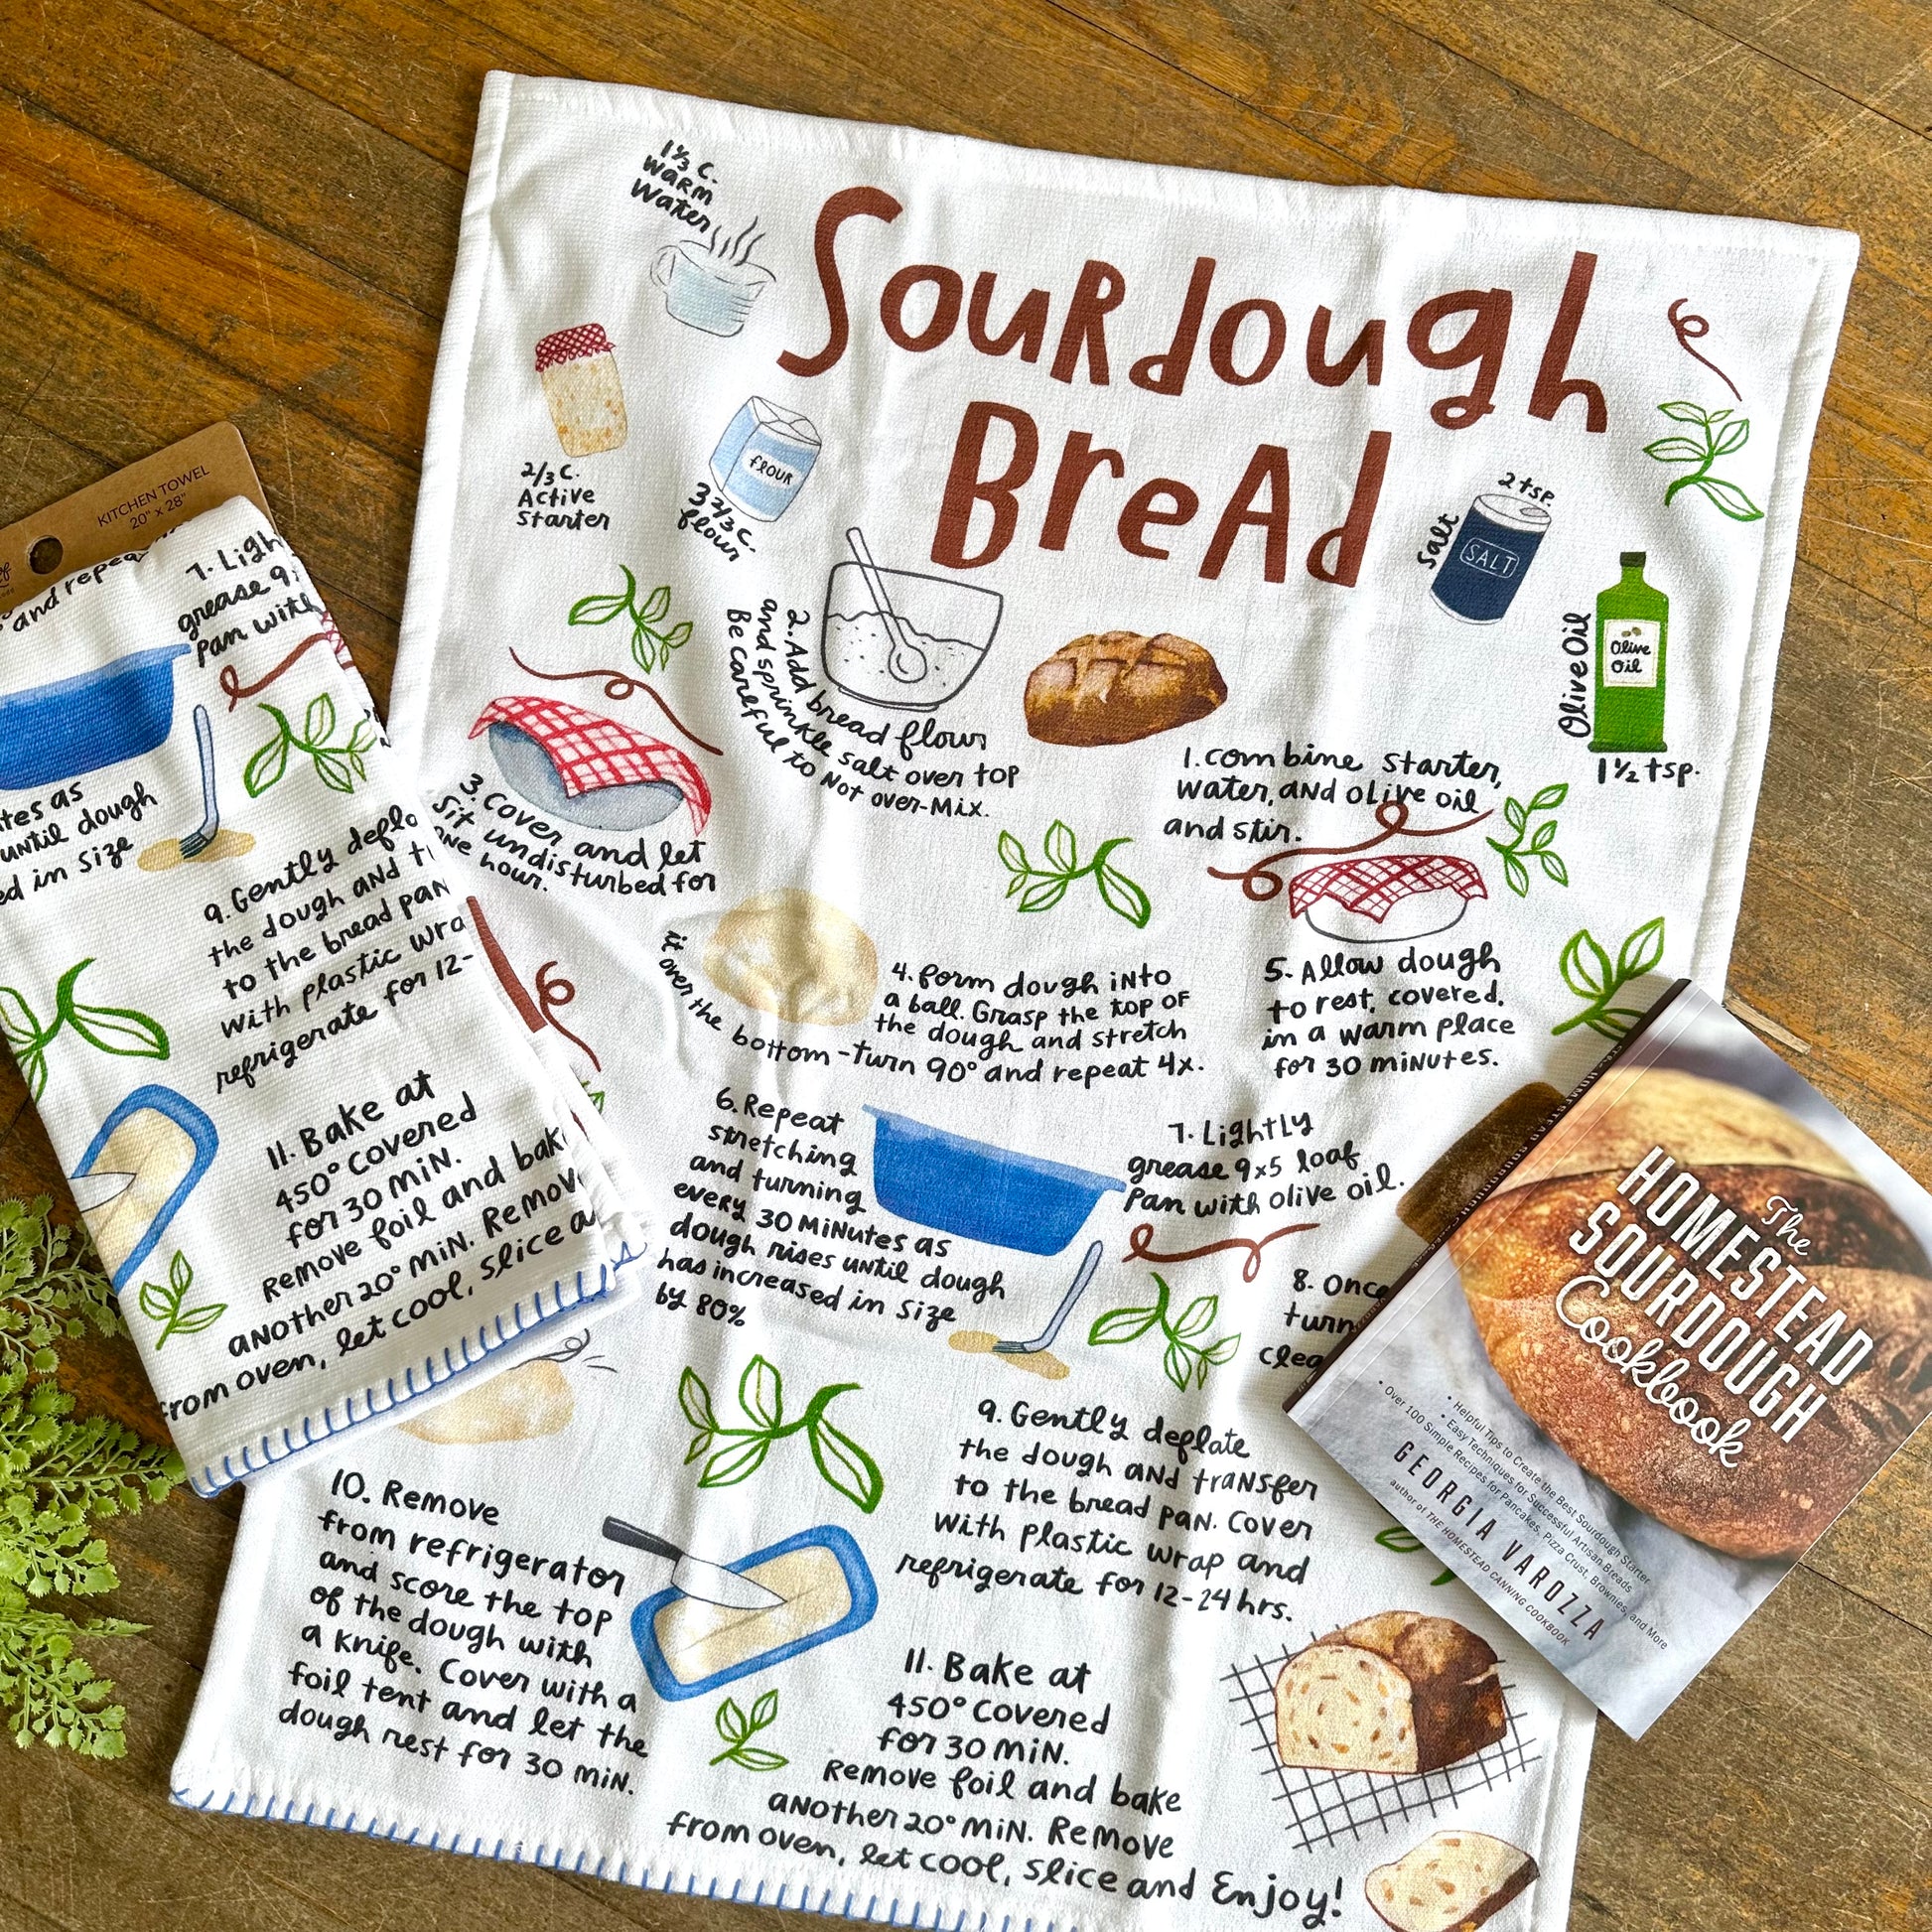 1⅓ C.
Warm
Water
Sourdough
Bread
2/3 C.
Active
Starter
flour
3 2/3 C.
flour
2 tsp.
Salt
SALT
Olive Oil
Olive
Oil
1½ tsp.
1. Combine starter,
water, and olive oil
and stir.
2. Add bread flour
and sprinkle salt over top
Be careful to Not over-Mix.
3. Cover and let
sit undisturbed for
one hour.
4. form dough into
a ball. Grasp the top of
the dough and stretch
it over the bottom - turn 90° and repeat 4x.
5. Allow dough
to rest, covered,
in a warm place
for 30 minutes.
6. Repeat
stretching
and turning
every 30 minutes as
dough rises until dough
has increased in size
by 80%
7. Lightly
grease 9x5 loaf
Pan with olive oil.
8. Once
turn
clea
9. Gently deflate
the dough and transfer
to the bread pan. Cover
with plastic wrap and
refrigerate for 12-24 hrs.
10. Remove
from refrigerator
and score the top
of the dough with
a knife. Cover with a
foil tent and let the
dough rest for 30 min.
11. Bake at
450° covered
for 30 min.
Remove foil and bake
another 20° min. Remove
from oven, let cool, slice and Enjoy!
KITCHEN TOWEL
20" x 28"
and repea
7. Ligh
grease 9x
Pan with
tes as
until dough
ed in size
9. Gently defla
the dough and t
to the bread pan
with plastic wra
refrigerate for 12-
11. Bake at
450° covered
for 30 min.
Remove foil and bak
another 20° min. Remov
from oven, let cool, slice a
The
HOMESTEAD
SOURDOUGH
Cookbook
• Helpful Tips to Create the Best Sourdough Starter
• Easy Techniques for Successful Artisan Breads
• Over 100 Simple Recipes for Pancakes, Pizza Crust, Brownies, and More
GEORGIA VAROZZA
author of THE HOMESTEAD CANNING COOKBOOK